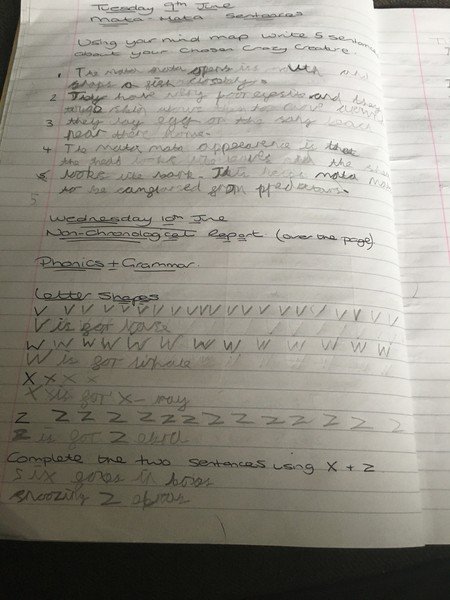 Tuesday 9th June
Mata-Mata Sentences
Using your mind map write 5 sentence
about your chosen crazy creature.
1. The mata mata opens its mouth and
snaps a fish
2 They have very poor eyesite and they
use
3 they lay egg on the sandy beach
near there home.
4 The mata mata appearence is that
the head looks like leaves and the
5. looks like bark. This helps mata mata
to be camflarged from predators.
5
Wednesday 10th June
Non-Chronological Report. (over the page)
Phonics + Grammar.
Letter Shapes
V V V V V V V V V V V V V V V V V
V is for
W W W W W W W W W W W W W W
W is for whale
X X X X
X is for X-ray
Z Z Z Z Z Z Z Z Z Z Z Z Z Z
Z is for Zebra
Complete the two sentences using X + Z
six foxes in boxes
snoozing Zebras